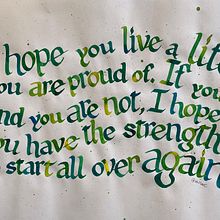 hope you live a life
ou are proud of. If you
nd you are not, I hope
ou have the strength
start all over again